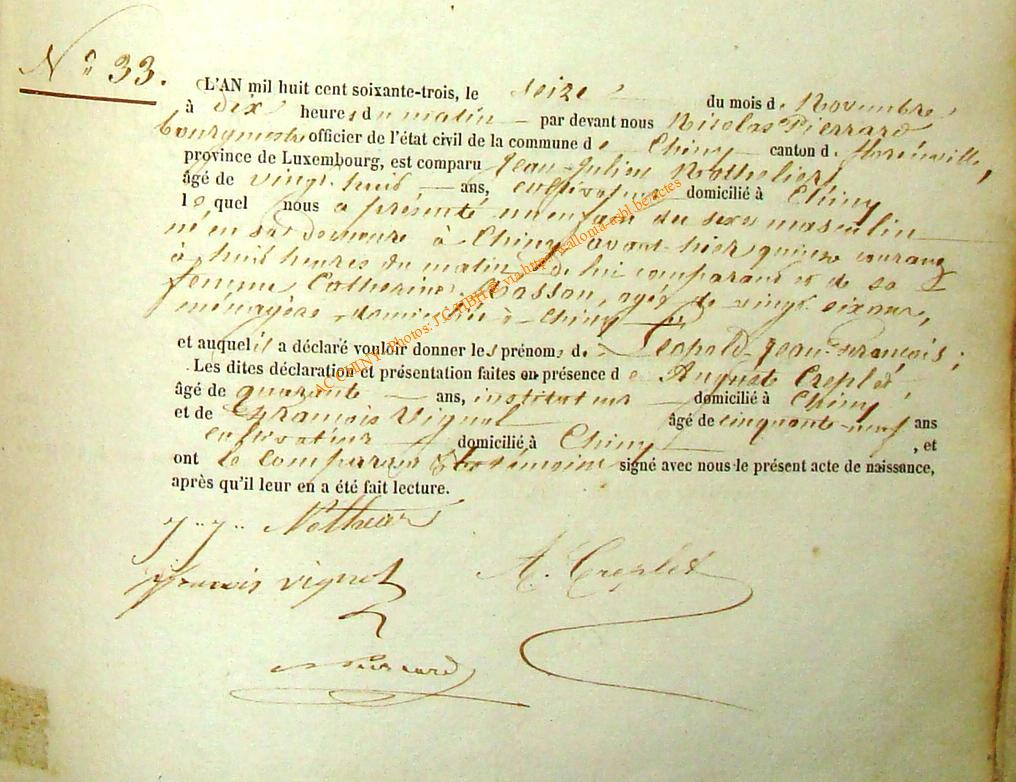 N° 33.
L'AN mil huit cent soixante-trois, le seize du mois de Novembre
à dix heures du matin par devant nous Nicolas Pierrard
bourgmestre officier de l'état civil de la commune de Chiny canton de florenville,
province de Luxembourg, est comparu Jean-Julien Nothelier,
âgé de vingt huit ans, cultivateur domicilié à Chiny
lequel nous a présenté un enfant du sexe masculin
né en sa demeure à Chiny avant-hier quinze courant
à huit heures du matin de lui comparant et de sa
femme Catherine Rosson, agée de vingt six ans,
ménagère, domiciliée à Chiny
et auquel il a déclaré vouloir donner les prénoms de Léopold-Jean-François;
Les dites déclaration et présentation faites en présence de Auguste Creplet
âgé de quarante ans, instituteur domicilié à Chiny
et de François Vignol âgé de cinquante-neuf ans
cultivateur domicilié à Chiny, et
ont le comparant & les témoins signé avec nous le présent acte de naissance,
après qu'il leur en a été fait lecture.
J. J. Nothelier
françois vignol A. Creplet
Pierrard
AC CHINY - Photos: J.C. via http://wallonia-asbl.be/actes